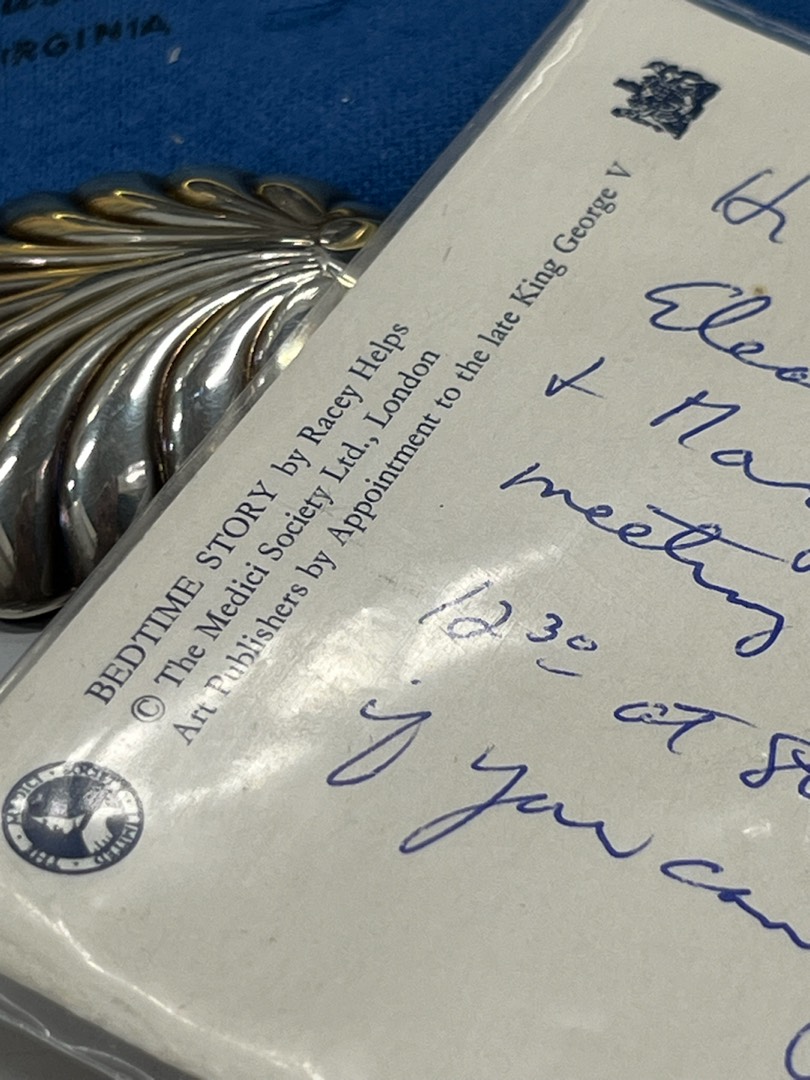 VIRGINIA
BEDTIME STORY by Racey Helps
© The Medici Society Ltd., London
Art Publishers by Appointment to the late King George V
THE MEDICI SOCIETY LIMITED
meeting
12 30 at
if you can